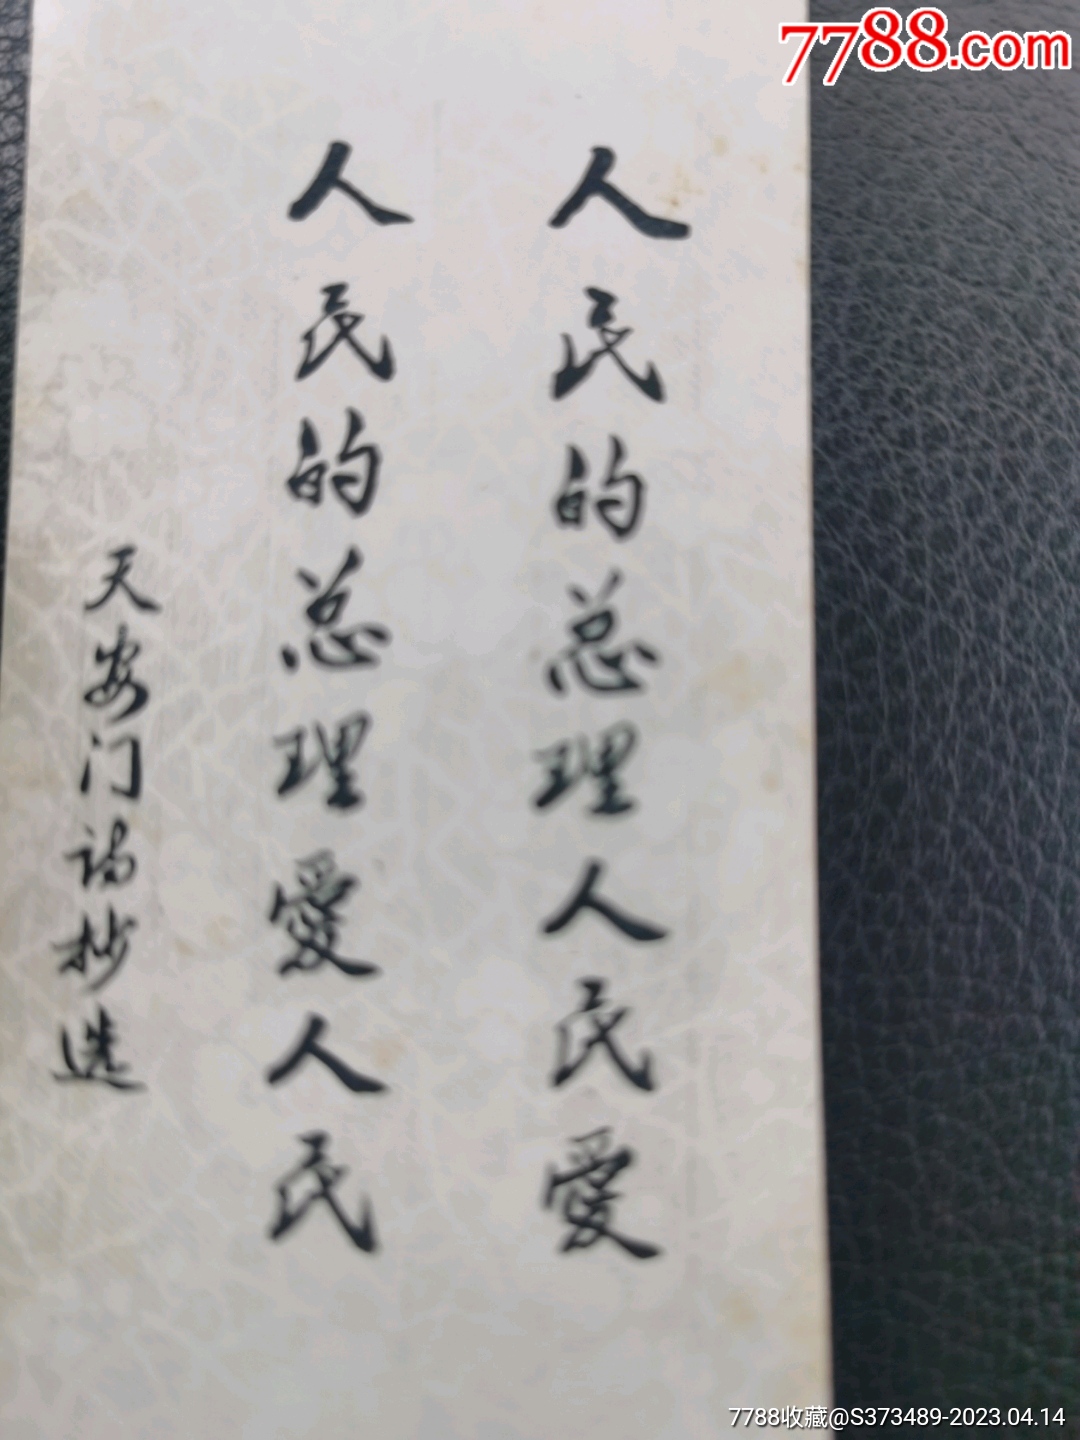 7788.com
人民的总理人民爱
人民的总理爱人民
天安门诗抄选
7788收藏@S373489-2023.04.14